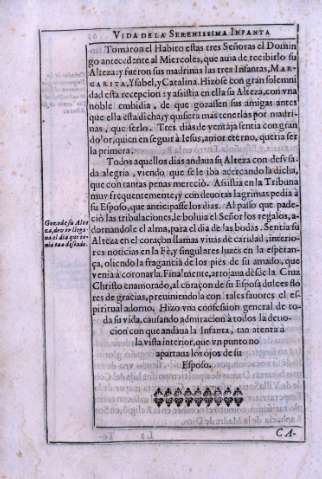 VIDA DE LA SERENISSIMA INFANTA
Tomaron el Habito estas tres Señoras el Domin
go antecedente al Miercoles, que auia de recibirlo su
Alteza: y fueron sus madrinas las tres Infantas, MAR-
GARITA, Ysabel, y Catalina. Hizose con gran solemni
dad esta recepcion y assistia en ella su Alteza, con vna
noble embidia, de que gozassen sus amigas antes
que ella esta dicha, y quisiera mas tenerlas por madri
nas, que serlo. Tres dias de ventaja sentia con gran
dolor, quien en seguir à Iesus, amor eterno, queria ser
la primera.
Todos aquellos dias andaua su Alteza con desusa
da alegria, viendo que se le iba acercando la dicha,
que con tantas penas mereciò. Assistia en la Tribuna
muy frequentemente, y con deuotas lagrimas pedia à
su Esposo, que anticipasse los dias. Al passo que pade-
ciò las tribulaciones, le boluia el Señor los regalos, a-
dornandole el alma, para el dia de las bodas. Sentia su
Alteza en el coraçon llamas viuas de caridad, interio-
res noticias en la Fè, y singulares luzes en la esperan-
ça, oliendo la fragancia de los pies de su amado, que
venia à coronarla. Finalmente, arrojaua desde la Cruz
Christo enamorado, al coraçon de su Esposa dulces flo
res de gracias, preuiniendola con tales fauores el es-
piritual adorno. Hizo vna confession general de to-
da su vida, causando admiracion à todos la deuo-
cion con que andaua la Infanta, tan atenta à
la vista interior, que vn punto no
apartaua los ojos de su
Esposo.
Goza de su Alte
za, de
na el dia por te
nia tan deseado.
C A-